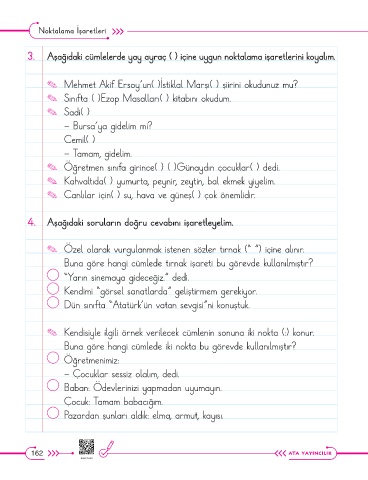 Noktalama İşaretleri
3. Aşağıdaki cümlelerde yay ayraç ( ) içine uygun noktalama işaretlerini koyalım.
Mehmet Akif Ersoy'un( )İstiklal Marşı( ) şiirini okudunuz mu?
Sınıfta ( )Ezop Masalları( ) kitabını okudum.
Sadi( )
– Bursa'ya gidelim mi?
Cemil( )
– Tamam, gidelim.
Öğretmen sınıfa girince( ) ( )Günaydın çocuklar( ) dedi.
Kahvaltıda( ) yumurta, peynir, zeytin, bal ekmek yiyelim.
Canlılar için( ) su, hava ve güneş( ) çok önemlidir.
4. Aşağıdaki soruların doğru cevabını işaretleyelim.
Özel olarak vurgulanmak istenen sözler tırnak (“ ”) içine alınır.
Buna göre hangi cümlede tırnak işareti bu görevde kullanılmıştır?
“Yarın sinemaya gideceğiz.” dedi.
Kendimi “görsel sanatlarda” geliştirmem gerekiyor.
Dün sınıfta “Atatürk'ün vatan sevgisi”ni konuştuk.
Kendisiyle ilgili örnek verilecek cümlenin sonuna iki nokta (:) konur.
Buna göre hangi cümlede iki nokta bu görevde kullanılmıştır?
Öğretmenimiz:
– Çocuklar sessiz olalım, dedi.
Babam: Ödevlerinizi yapmadan uyumayın.
Çocuk: Tamam babacığım.
Pazardan şunları aldık: elma, armut, kayısı.
162
ATA YAYINCILIK